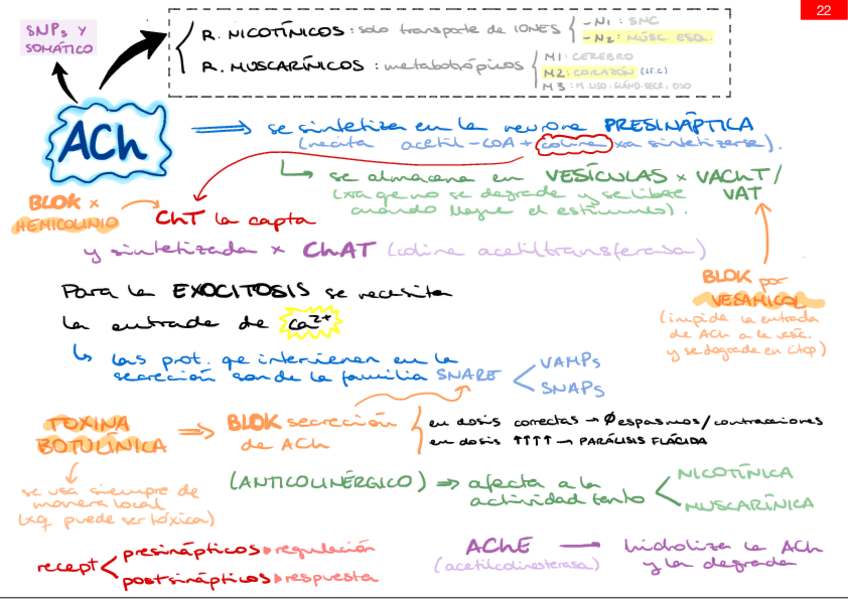 22
SNPs y
SOMÁTICO
R. NICOTÍNICOS: solo transporte de IONES
-N1: SNC
-N2: MÚSC. ESQ.
R. MUSCARÍNICOS: metabotrópicos
M1: CEREBRO
M2: CORAZÓN (↓F.C)
M3: M. LISO, GLÁND. SECR, OJO
ACh
⇒ se sintetiza en la neurona PRESINÁPTICA
(necesita acetil-COA + colina xa sintetizarse).
↳ se almacena en VESÍCULAS x VAChT/
VAT
(xa qe no se degrade y se libre
cuando llegue el estímulo).
BLOK x
HEMICOLINIO
ChT la capta
y sintetizada x ChAT (colina acetiltransferasa)
BLOK por
VESAMICOL
(impide la entrada
de ACh a la vesíc.
y se degrada en citop)
Para la EXOCITOSIS se necesita
la entrada de Ca2+
↳ las prot. qe intervienen en la
secreción son de la familia SNARE
VAMPs
SNAPs
TOXINA
BOTULÍNICA
⇒ BLOK secreción
de ACh
en dosis correctas → Ø espasmos/contracciones
en dosis ↑↑↑↑ → PARÁLISIS FLÁCIDA
se usa siempre de
manera local
(xq puede ser tóxica)
(ANTICOLINÉRGICO) ⇒ afecta a la
actividad tanto
NICOTÍNICA
MUSCARÍNICA
recept
presinápticos ▸ regulación
postsinápticos ▸ respuesta
AChE → hidroliza la ACh
(acetilcolinesterasa) y la degrada